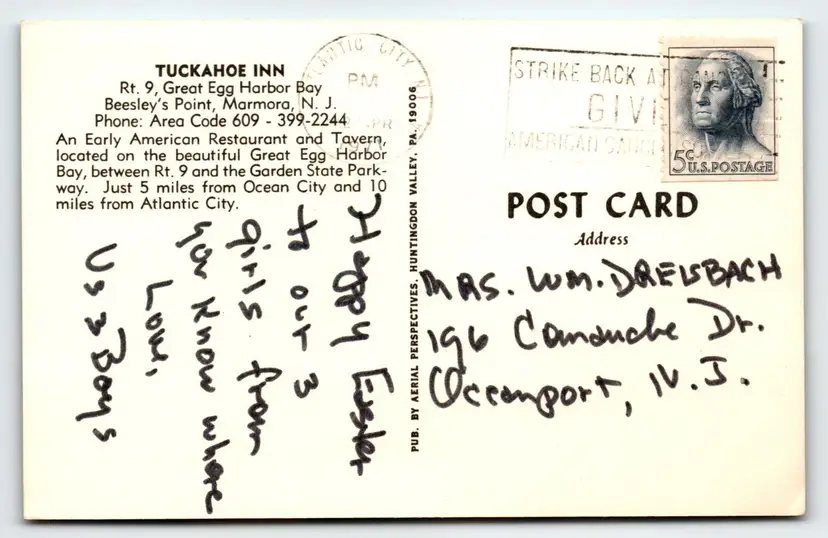 TUCKAHOE INN
Rt. 9, Great Egg Harbor Bay
Beesley's Point, Marmora, N. J.
Phone: Area Code 609 - 399-2244
An Early American Restaurant and Tavern,
located on the beautiful Great Egg Harbor
Bay, between Rt. 9 and the Garden State Park-
way. Just 5 miles from Ocean City and 10
miles from Atlantic City.
Happy Easter
to our 3
girls from
you know where
Love,
Us 3 Boys
PUB. BY AERIAL PERSPECTIVES, HUNTINGDON VALLEY, PA. 19006
ATLANTIC CITY N.J.
PM
APR
STRIKE BACK AT
GIVE
AMERICAN CANCER
5 C.
U.S. POSTAGE
POST CARD
Address
MRS. WM. DREISBACH
196 Comanche Dr.
Oceanport, N. J.